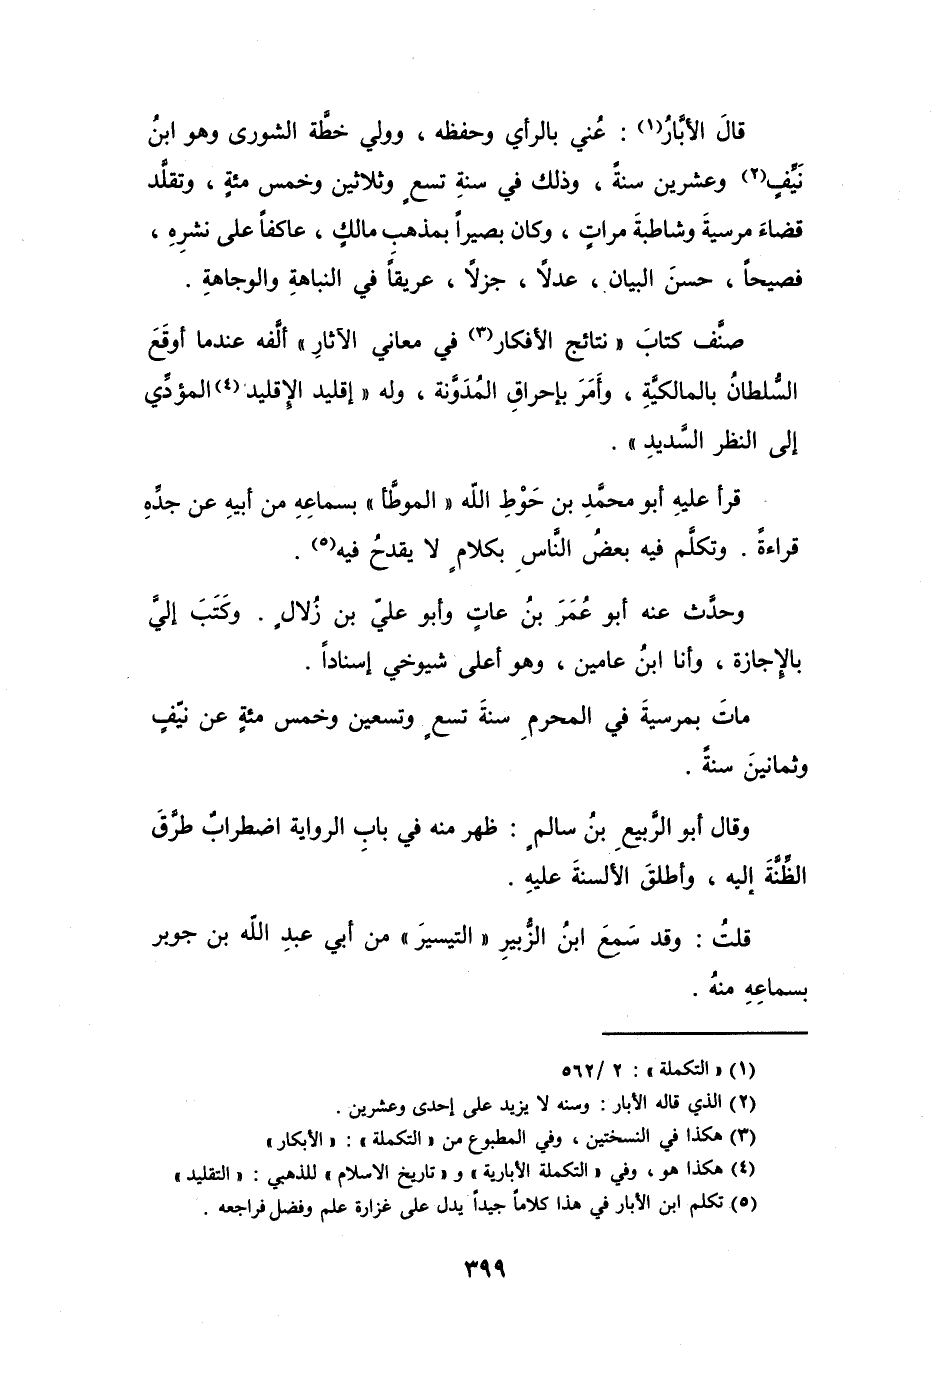 قالَ الأبَّارُ(١) : عُني بالرأي وحفظه ، وولي خطَّة الشورى وهو ابنُ
نَيِّفٍ(٢) وعشرين سنةً ، وذلك في سنةِ تسعٍ وثلاثين وخمس مئةٍ ، وتقلَّد
قضاءَ مرسيةَ وشاطبةَ مراتٍ ، وكان بصيراً بمذهبِ مالكٍ ، عاكفاً على نشرِهِ ،
فصيحاً ، حسنَ البيانِ ، عدلًا ، جزلًا ، عريقاً في النباهةِ والوجاهةِ .
صنَّف كتابَ « نتائج الأفكار(٣) في معاني الآثارِ » ألَّفه عندما أوقَعَ
السُّلطانُ بالمالكيَّةِ ، وأَمَرَ بإحراقِ المُدَوَّنة ، وله « إقليد الإقليد(٤) المؤدِّي
إلى النظر السَّديدِ » .
قرأ عليهِ أبو محمَّدِ بن حَوْطِ اللّه « الموطَّأ » بسماعِهِ من أبيهِ عن جدِّهِ
قراءةً . وتكلَّم فيه بعضُ النَّاسِ بكلامٍ لا يقدحُ فيه(٥) .
وحدَّث عنه أبو عُمَرَ بنُ عاتٍ وأبو عليّ بن زُلالٍ . وكَتَبَ إليَّ
بالإجازة ، وأنا ابنُ عامين ، وهو أعلى شيوخي إسناداً .
ماتَ بمرسيةَ في المحرمِ سنةَ تسعٍ وتسعين وخمس مئةٍ عن نيّفٍ
وثمانينَ سنةً .
وقال أبو الرَّبيعِ بنُ سالمٍ : ظهر منه في بابِ الرواية اضطرابٌ طرَّقَ
الظِّنَّةَ إليه ، وأطلقَ الألسنةَ عليهِ .
قلتُ : وقد سَمِعَ ابنُ الزُّبيرِ « التيسيرَ » من أبي عبدِ اللّه بن جوبر
بسماعِهِ منهُ .
(١) « التكملة » : ٢ /٥٦٢
(٢) الذي قاله الأبار : وسنه لا يزيد على إحدى وعشرين .
(٣) هكذا في النسختين ، وفي المطبوع من « التكملة » : « الأبكار »
(٤) هكذا هو ، وفي « التكملة الأبارية » و « تاريخ الاسلام » للذهبي : « التقليد »
(٥) تكلم ابن الأبار في هذا كلاماً جيداً يدل على غزارة علم وفضل فراجعه .
٣٩٩